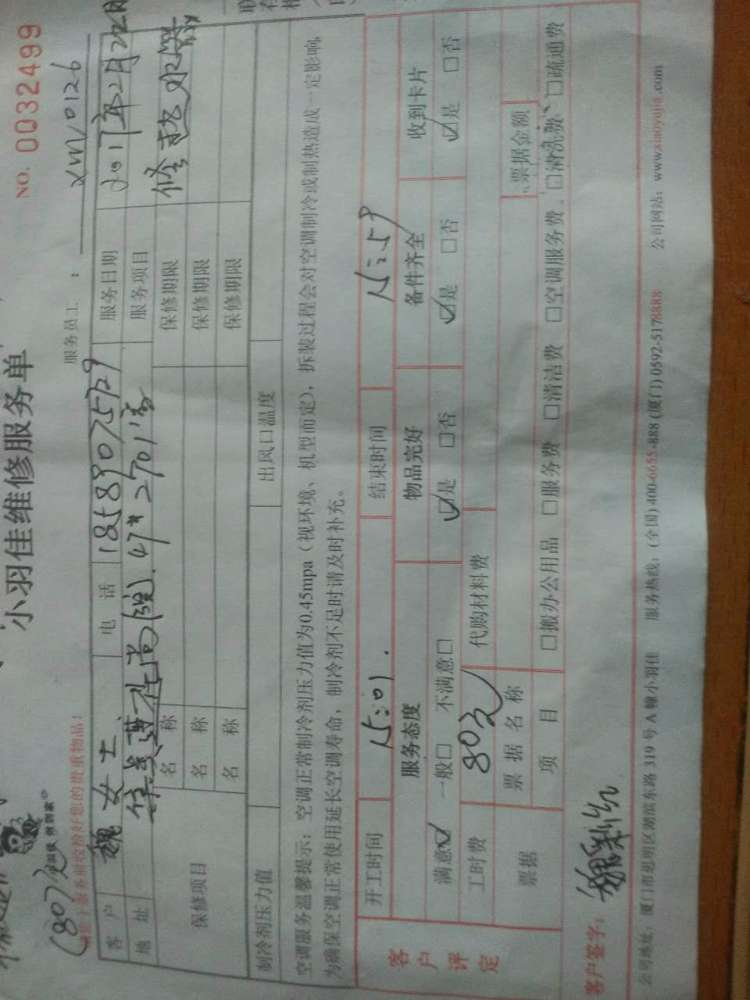 NO. 0032499
小羽佳维修服务单
(80元)
服务员工： XM/0126
客 户 魏女士 电 话 18589075729 服务日期 2017年2月22日
地 址 47# 2701室 服务项目 修热水器
保修项目 名 称 保修期限
名 称 保修期限
名 称 保修期限
制冷剂压力值 出风口温度
空调服务温馨提示：空调正常制冷剂压力值为0.45mpa（视环境、机型而定），拆装过程会对空调制冷或制热造成一定影响，
为确保空调正常使用延长空调寿命，制冷剂不足时请及时补充。
客户评定
开工时间 15:01 结束时间 15:59
服务态度 物品完好 备件齐全 收到卡片
满意☑ 一般□ 不满意□ ☑是 □否 ☑是 □否 ☑是 □否
工时费 80元 代购材料费
票据 票据名称 票据金额
项 目 □搬办公用品 □服务费 □清洁费 □空调服务费 □清洗费 □疏通费
客户签字：
公司地址：厦门市思明区湖滨东路 319 号 A 幢小羽佳 服务热线：(全国) 400-6655-888 (厦门) 0592-5178888 公司网站：www.xiaoyujia.com